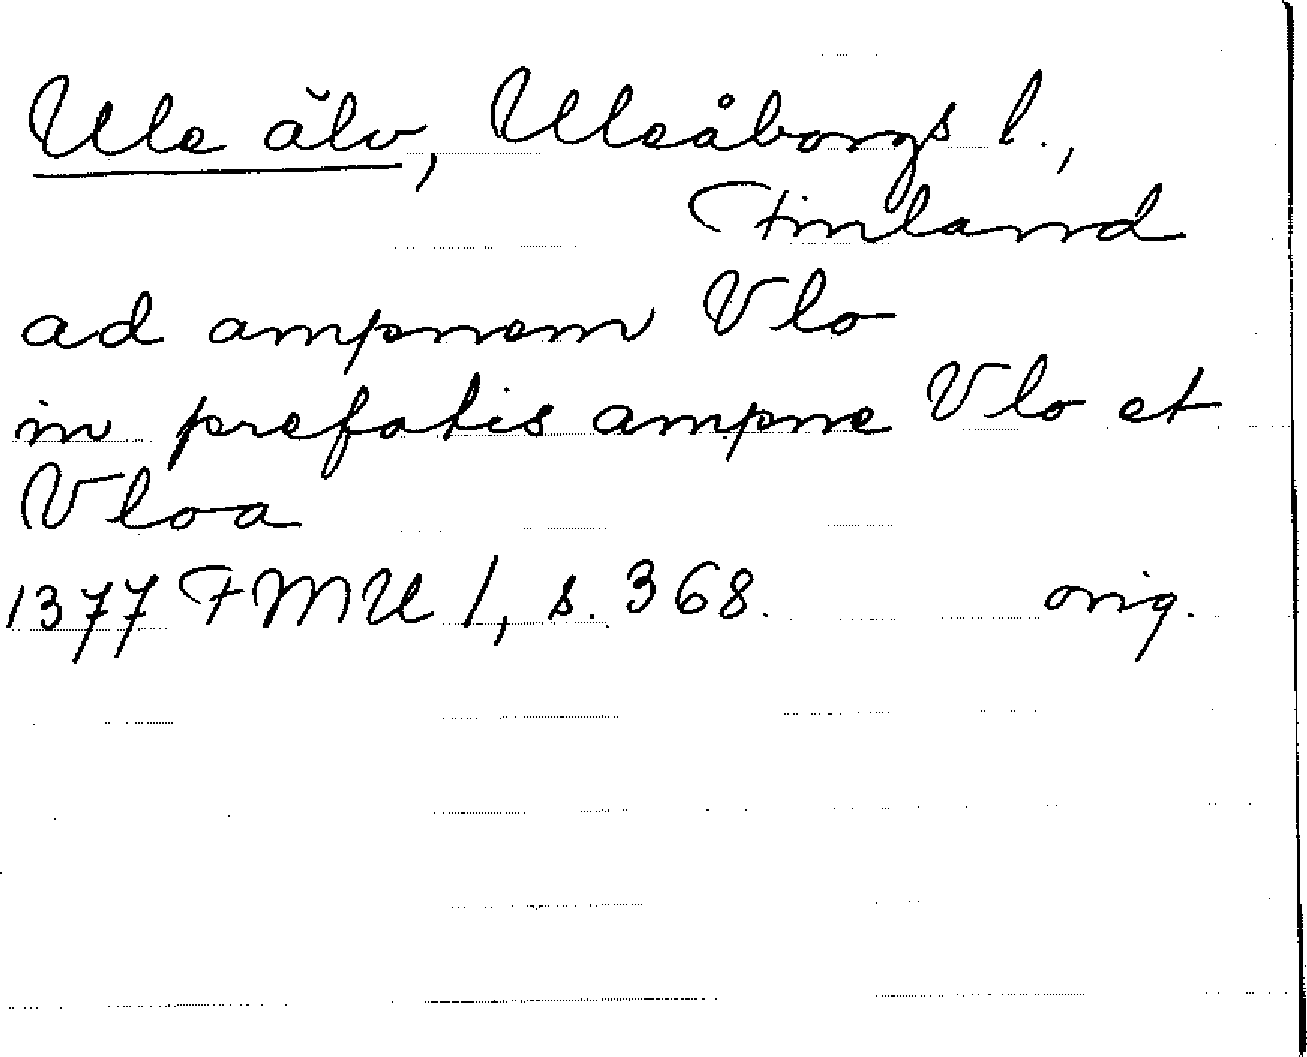 Ule älv, Uleåborgs l.,
Finland
ad ampnem Vlo
in prefatis ampne Vlo et
Vloa
1377 FMU 1, s. 368. orig.